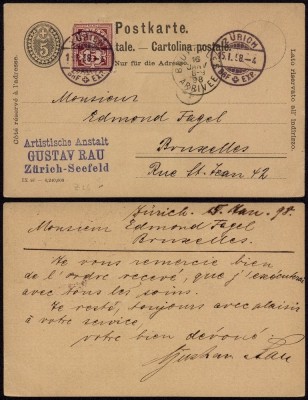 Postkarte.
tale. — Cartolina postale.
Nur für die Adresse
Côté réservé à l'adresse.
Lato riservato all' indirizzo
5
ZÜRICH
15.I.98.-4
BRF. EXP.
ARRIVEE
Monsieur
Edmond Fagel
Bruxelles
Rue St. Jean 42
Artistische Anstalt
GUSTAV RAU
Zürich-Seefeld
Zürich. 15. Jan. 98.
Monsieur Edmond Fagel
Bruxelles.
Je vous remercie bien
de l'ordre receve, que j'exécuterai
avec tous les soins.
Je reste, toujours avec plaisir
à votre service,
votre bien dévoué
Gustav Rau